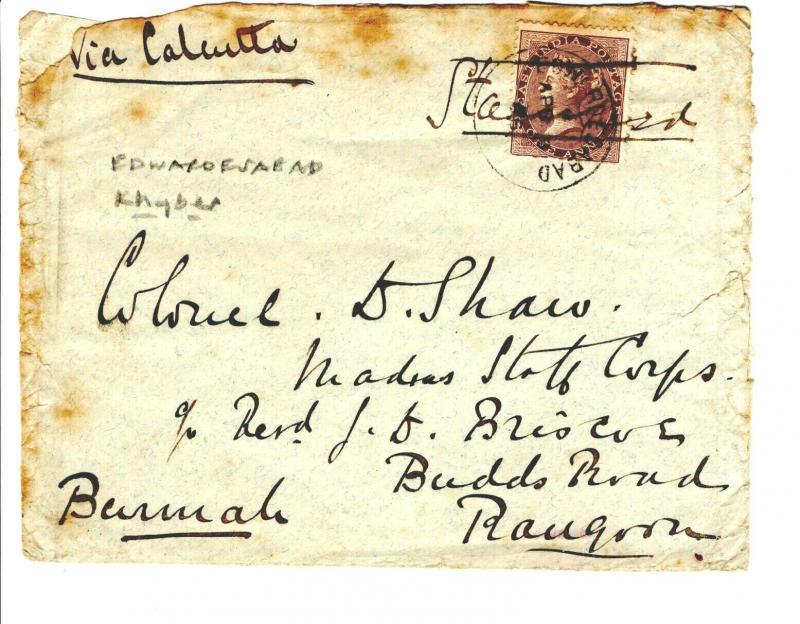 Via Calcutta
EAST INDIA POSTAGE
APR
EDWARDESABAD
Khyber
Colonel. D. Shaw.
Madras Staff Corps.
c/o Revd J. D. Briscoe
Budds Road
Burmah
Rangoon.